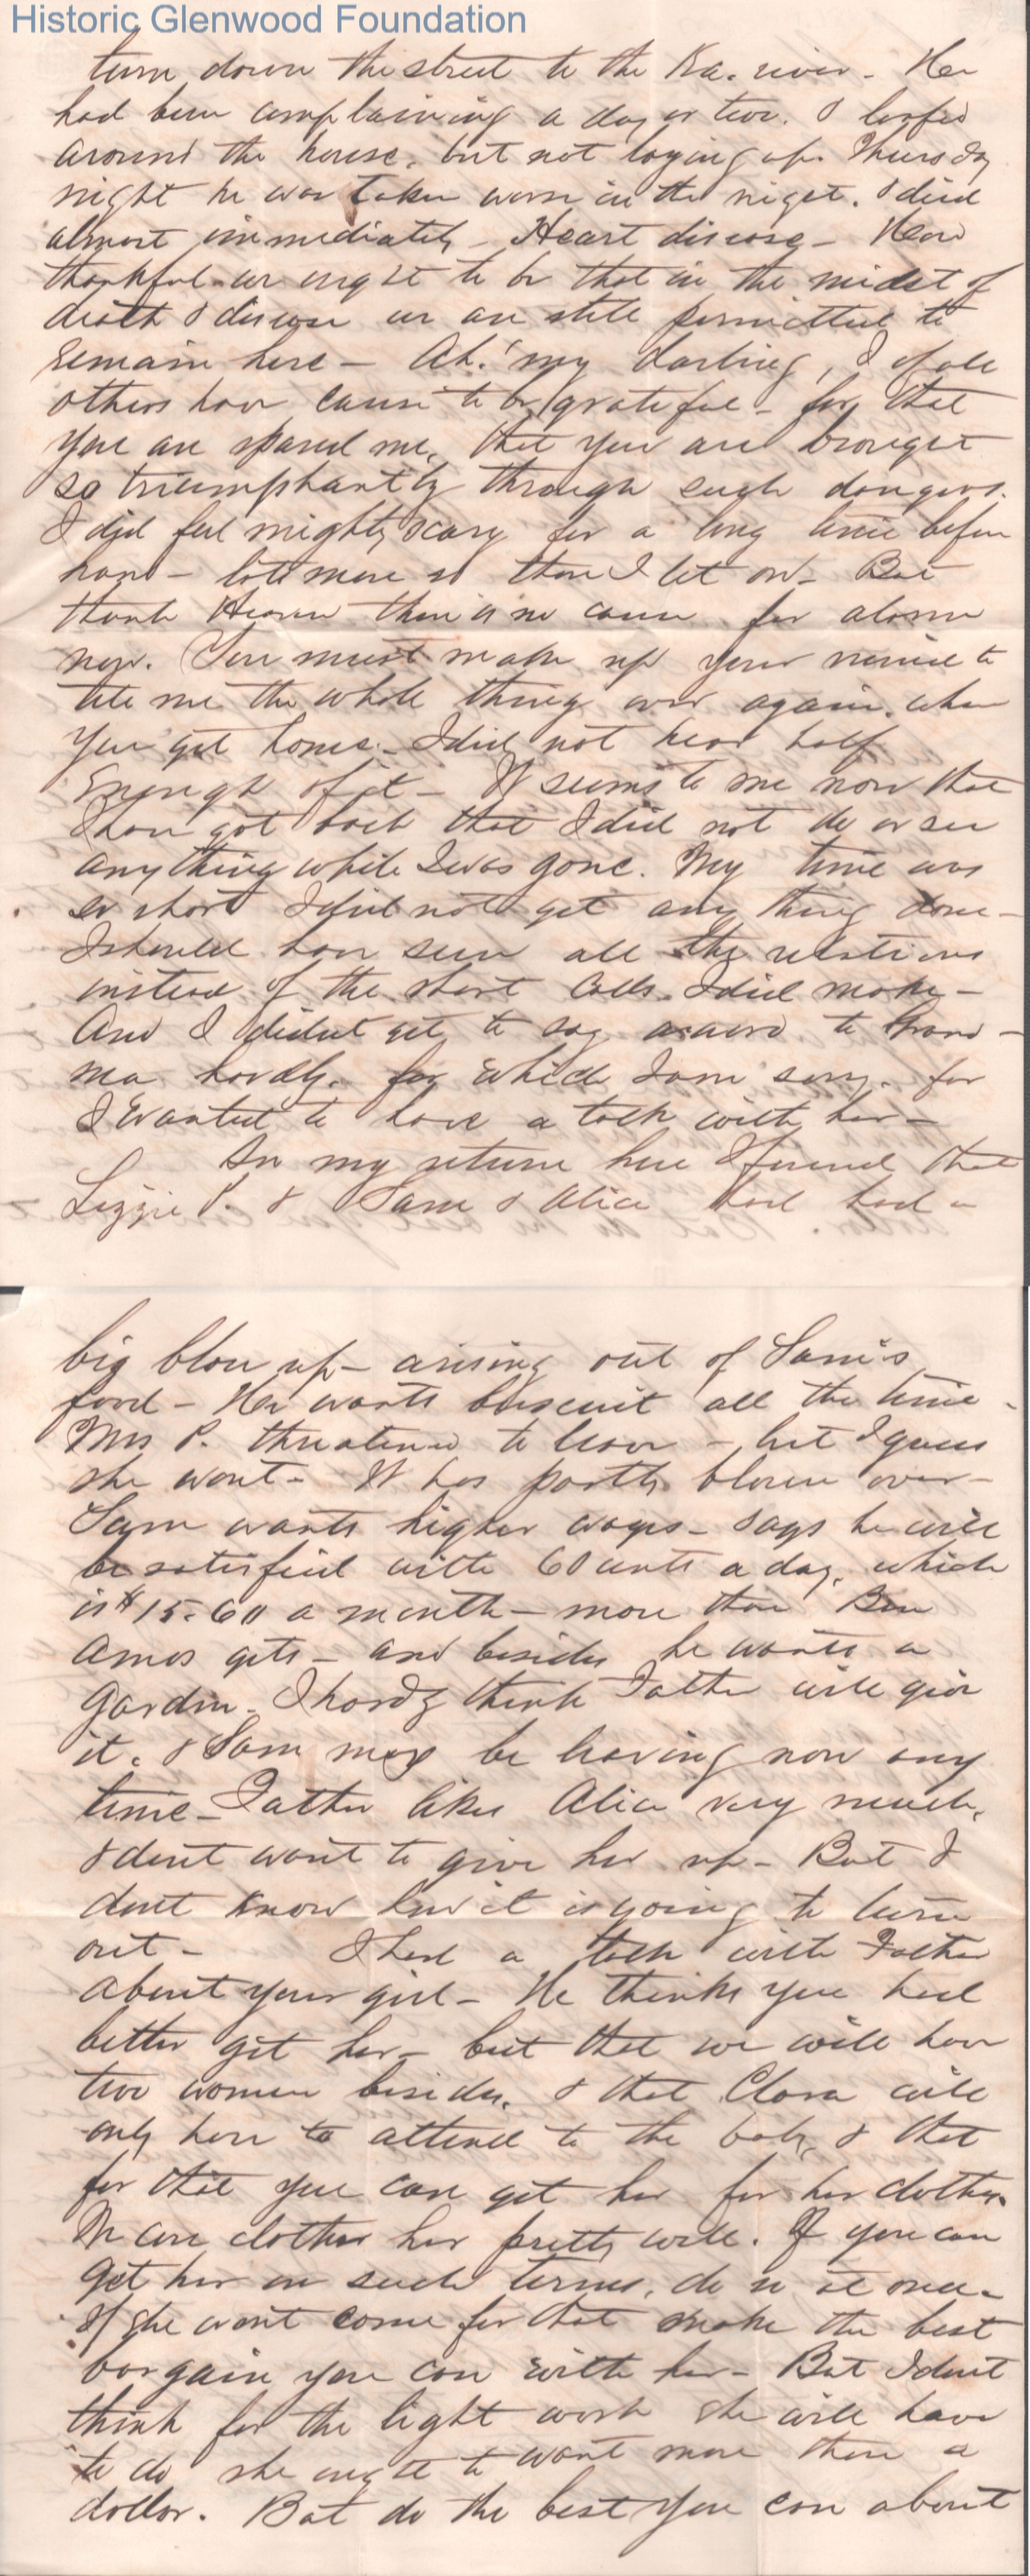 Historic Glenwood Foundation
turn down the street to the Ka. river - He
had been complaining a day or two. & loafed
around the house, but not laying up. Thursday
night he was taken worse in the night. & died
almost immediately - Heart disease - How
thankful we ought to be that in the midst of
death & disease we are still permitted to
remain here - Ah! my darling, I of all
others have cause to be grateful - for that
you are spared me, that you are brought
so triumphantly through such dangers.
I did feel mighty scary for a long time before
hand - lots more so than I let on - But
thank Heaven there is no cause for alarm
now. You must make up your mind to
tell me the whole thing over again, when
you get home - I did not hear half
Enough of it - It seems to me now that
I have got back that I did not do or see
any thing while I was gone. My time was
so short I did not get any thing done -
I should have seen all the relations
instead of the short calls I did make -
And I didnt get to say a word to Grand-
ma hardly. for which I am sorry. for
I wanted to have a talk with her -
On my return here I found that
Lizzie P. & Sam & Alice had had a
big blow up - arising out of Sam's
food - He wants biscuit all the time -
Mrs P. threatened to leave - but I guess
she wont - It has partly blown over -
Sam wants higher wages - says he will
be satisfied with 60 cents a day, which
is $15.60 a month - more than Ben
Amos gets - and besides he wants a
Garden - I hardly think Father will give
it. & Sam may be leaving now any
time - Father likes Alice very much,
& dont want to give her up - But I
dont know how it is going to turn
out - I had a talk with Father
about your girl - He thinks you had
better get her - but that we will have
two women besides, & that Clara will
only have to attend to the baby, & that
for that you can get her for her clothes.
We can clothe her pretty well. If you can
get her on such terms, do so at once -
If she wont come for that make the best
bargain you can with her - But I dont
think for the light work she will have
to do she ought to want more than a
dollar. But do the best you can about